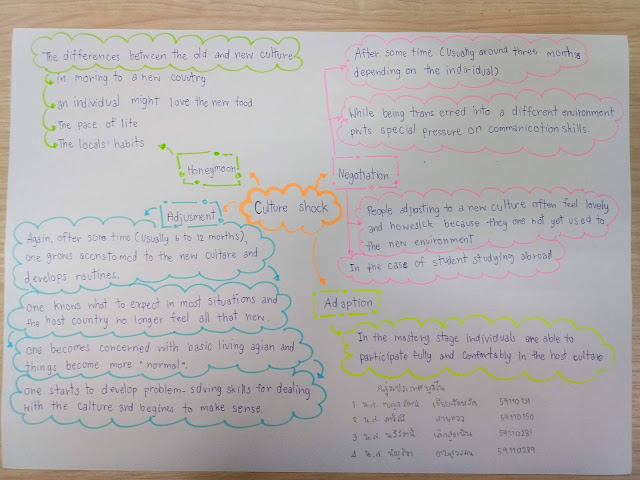 The differences between the old and new culture
In moring to a new country
an individual might love the new food
The pace of life
The locals' habits
Honeymoon
Culture shock
After some time (Usually around three months
depending on the individual)
While being trans erred into a different environment
puts special pressure on communication skills.
Negotiation
People adjusting to a new culture often feel lovely
and homesick because they are not yet used to
the new environment
In the case of student studying abroad
Adjusment
Again, after some time (Usually 6 to 12 months),
one grows accnstomed to the new culture and
develops routines.
one knows what to expect in most situations and
the host country no longer feel all that new.
one becomes concerned with basic living agian and
things become more "normal".
one starts to develop problem-solving skills for dealing
with the calture and begines to make sense.
Adaption
In the mastery stage individuals are able to
participate fully and comfortably in the host culture
1 น.ส. 59110131
2 น.ส. 59110150
3 น.ส. 59110281
4 น.ส. 59110289